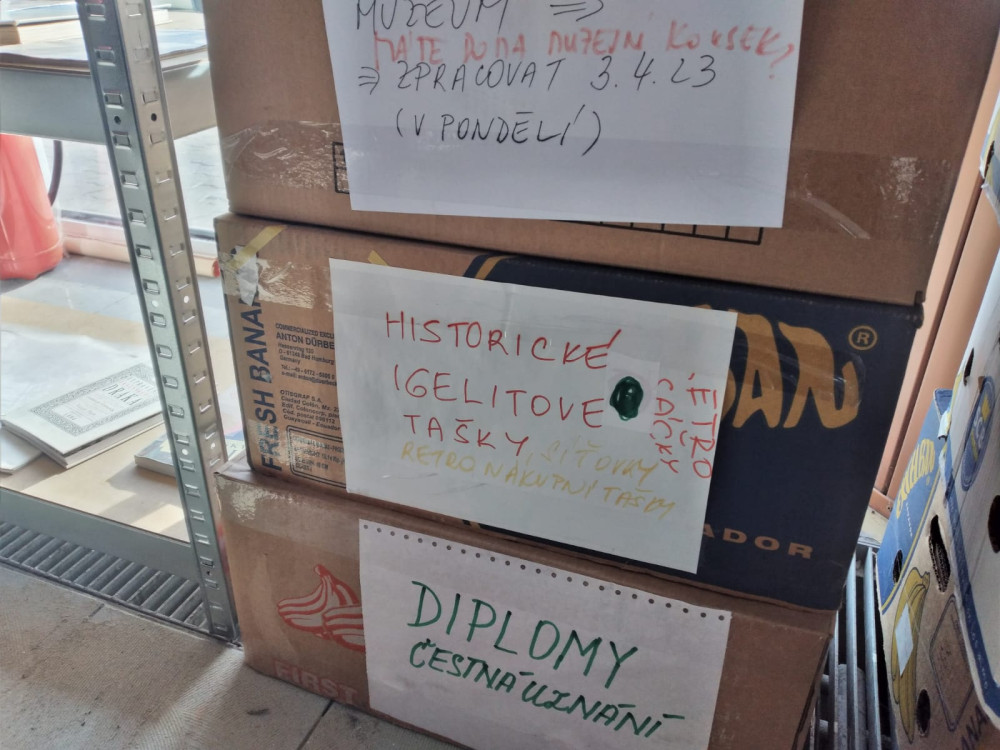 MUZEUM ⇒
MÁTE DOMA MUZEJNÍ KOUSEK?
⇒ ZPRACOVAT 3.4.23
(V PONDĚLÍ)
FRESH BANAN
COMMERCIALIZED EXCLU
ANTON DÜRBE
Germany
HISTORICKÉ
IGELITOVÉ
TAŠKY, SÍŤOVKY
RETRO NÁKUPNÍ TAŠKY
RETRO
®
ADOR
DIPLOMY
ČESTNÁ UZNÁNÍ
FIRST